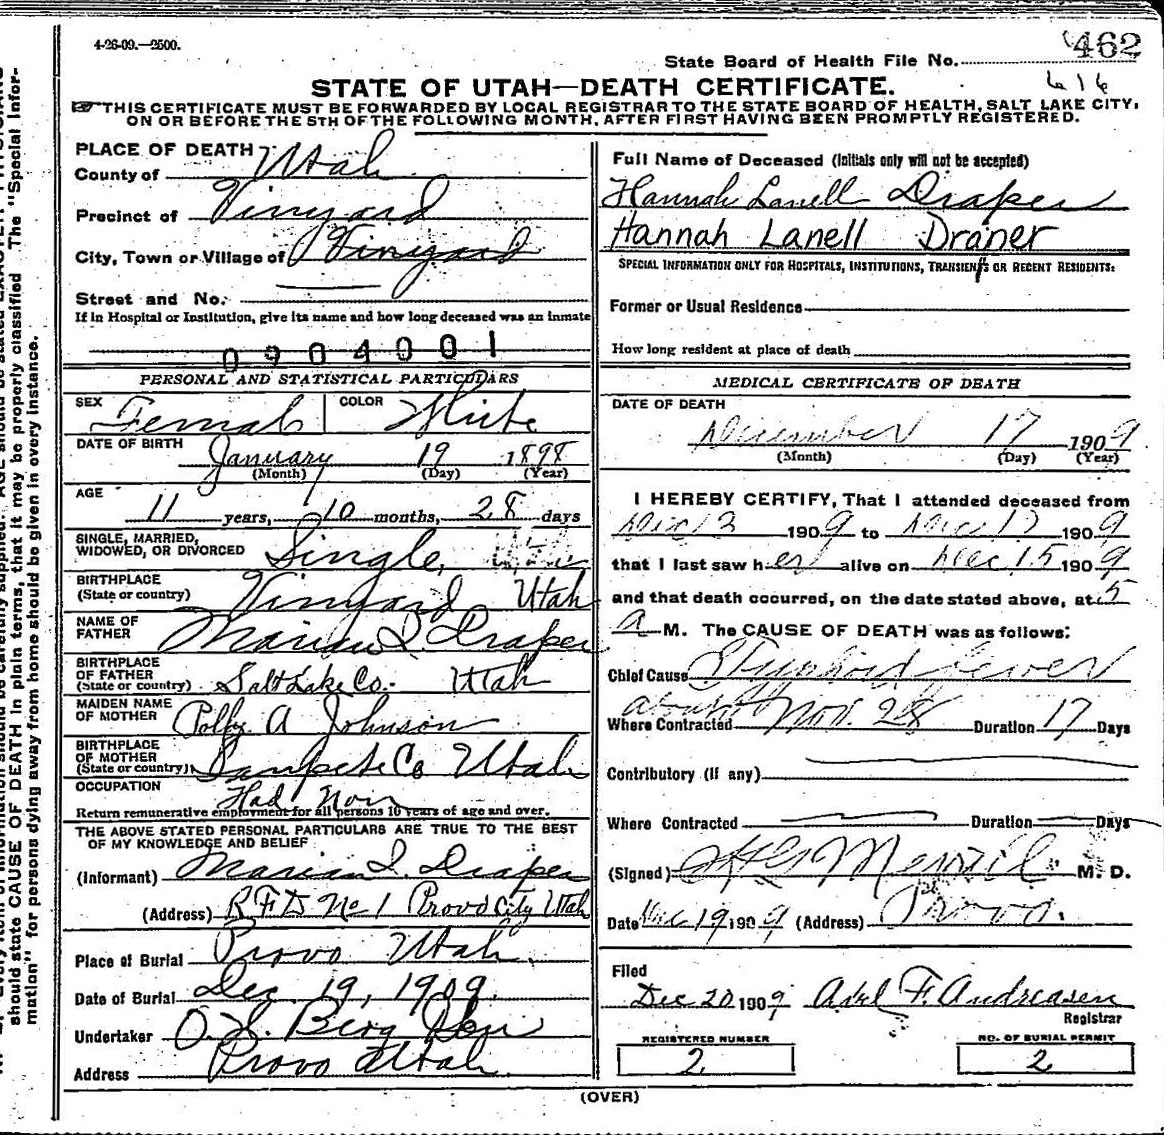 4-26-09.—2500.
State Board of Health File No. 462
616
STATE OF UTAH—DEATH CERTIFICATE.
THIS CERTIFICATE MUST BE FORWARDED BY LOCAL REGISTRAR TO THE STATE BOARD OF HEALTH, SALT LAKE CITY,
ON OR BEFORE THE 5TH OF THE FOLLOWING MONTH, AFTER FIRST HAVING BEEN PROMPTLY REGISTERED.
PLACE OF DEATH
County of Utah
Precinct of Vinyard
City, Town or Village of Vinyard
Street and No.
If in Hospital or Institution, give its name and how long deceased was an inmate
0904001
PERSONAL AND STATISTICAL PARTICULARS
SEX Female COLOR White
DATE OF BIRTH January 19 1898
(Month) (Day) (Year)
AGE
11 years, 10 months, 28 days
SINGLE, MARRIED,
WIDOWED, OR DIVORCED Single
BIRTHPLACE
(State or country) Vinyard Utah
NAME OF
FATHER Marian I. Draper
BIRTHPLACE
OF FATHER
(State or country) Salt Lake Co. Utah
MAIDEN NAME
OF MOTHER Polly A Johnson
BIRTHPLACE
OF MOTHER
(State or country) Sanpete Co Utah
OCCUPATION
Had Non
Return remunerative employment for all persons 10 years of age and over.
THE ABOVE STATED PERSONAL PARTICULARS ARE TRUE TO THE BEST
OF MY KNOWLEDGE AND BELIEF
(Informant) Marian I. Draper
(Address) R.F.D No 1 Provo City Utah
Place of Burial Provo Utah.
Date of Burial Dec. 19, 1909.
Undertaker O. H. Berg Son
Address Provo Utah.
Full Name of Deceased (Initials only will not be accepted)
Hannah Lanell Draper
Hannah Lanell Draper
SPECIAL INFORMATION ONLY FOR HOSPITALS, INSTITUTIONS, TRANSIENTS OR RECENT RESIDENTS:
Former or Usual Residence
How long resident at place of death
MEDICAL CERTIFICATE OF DEATH
DATE OF DEATH
December 17 1909
(Month) (Day) (Year)
I HEREBY CERTIFY, That I attended deceased from
Dec 13 1909 to Dec 17 1909
that I last saw her alive on Dec 15 1909
and that death occurred, on the date stated above, at 5
a M. The CAUSE OF DEATH was as follows:
Chief Cause Typhoid Fever
about
Where Contracted Nov. 28 Duration 17 Days
Contributory (if any)
Where Contracted Duration Days
(Signed) M. D.
Date Dec 19 1909 (Address) Provo.
Filed
Dec 20 1909 Abel F. Andreasen
Registrar
REGISTERED NUMBER
2
NO. OF BURIAL PERMIT
2
(OVER)
should state CAUSE OF DEATH in plain terms, that it may be properly classified. The "Special Infor-
mation" for persons dying away from home should be given in every instance.